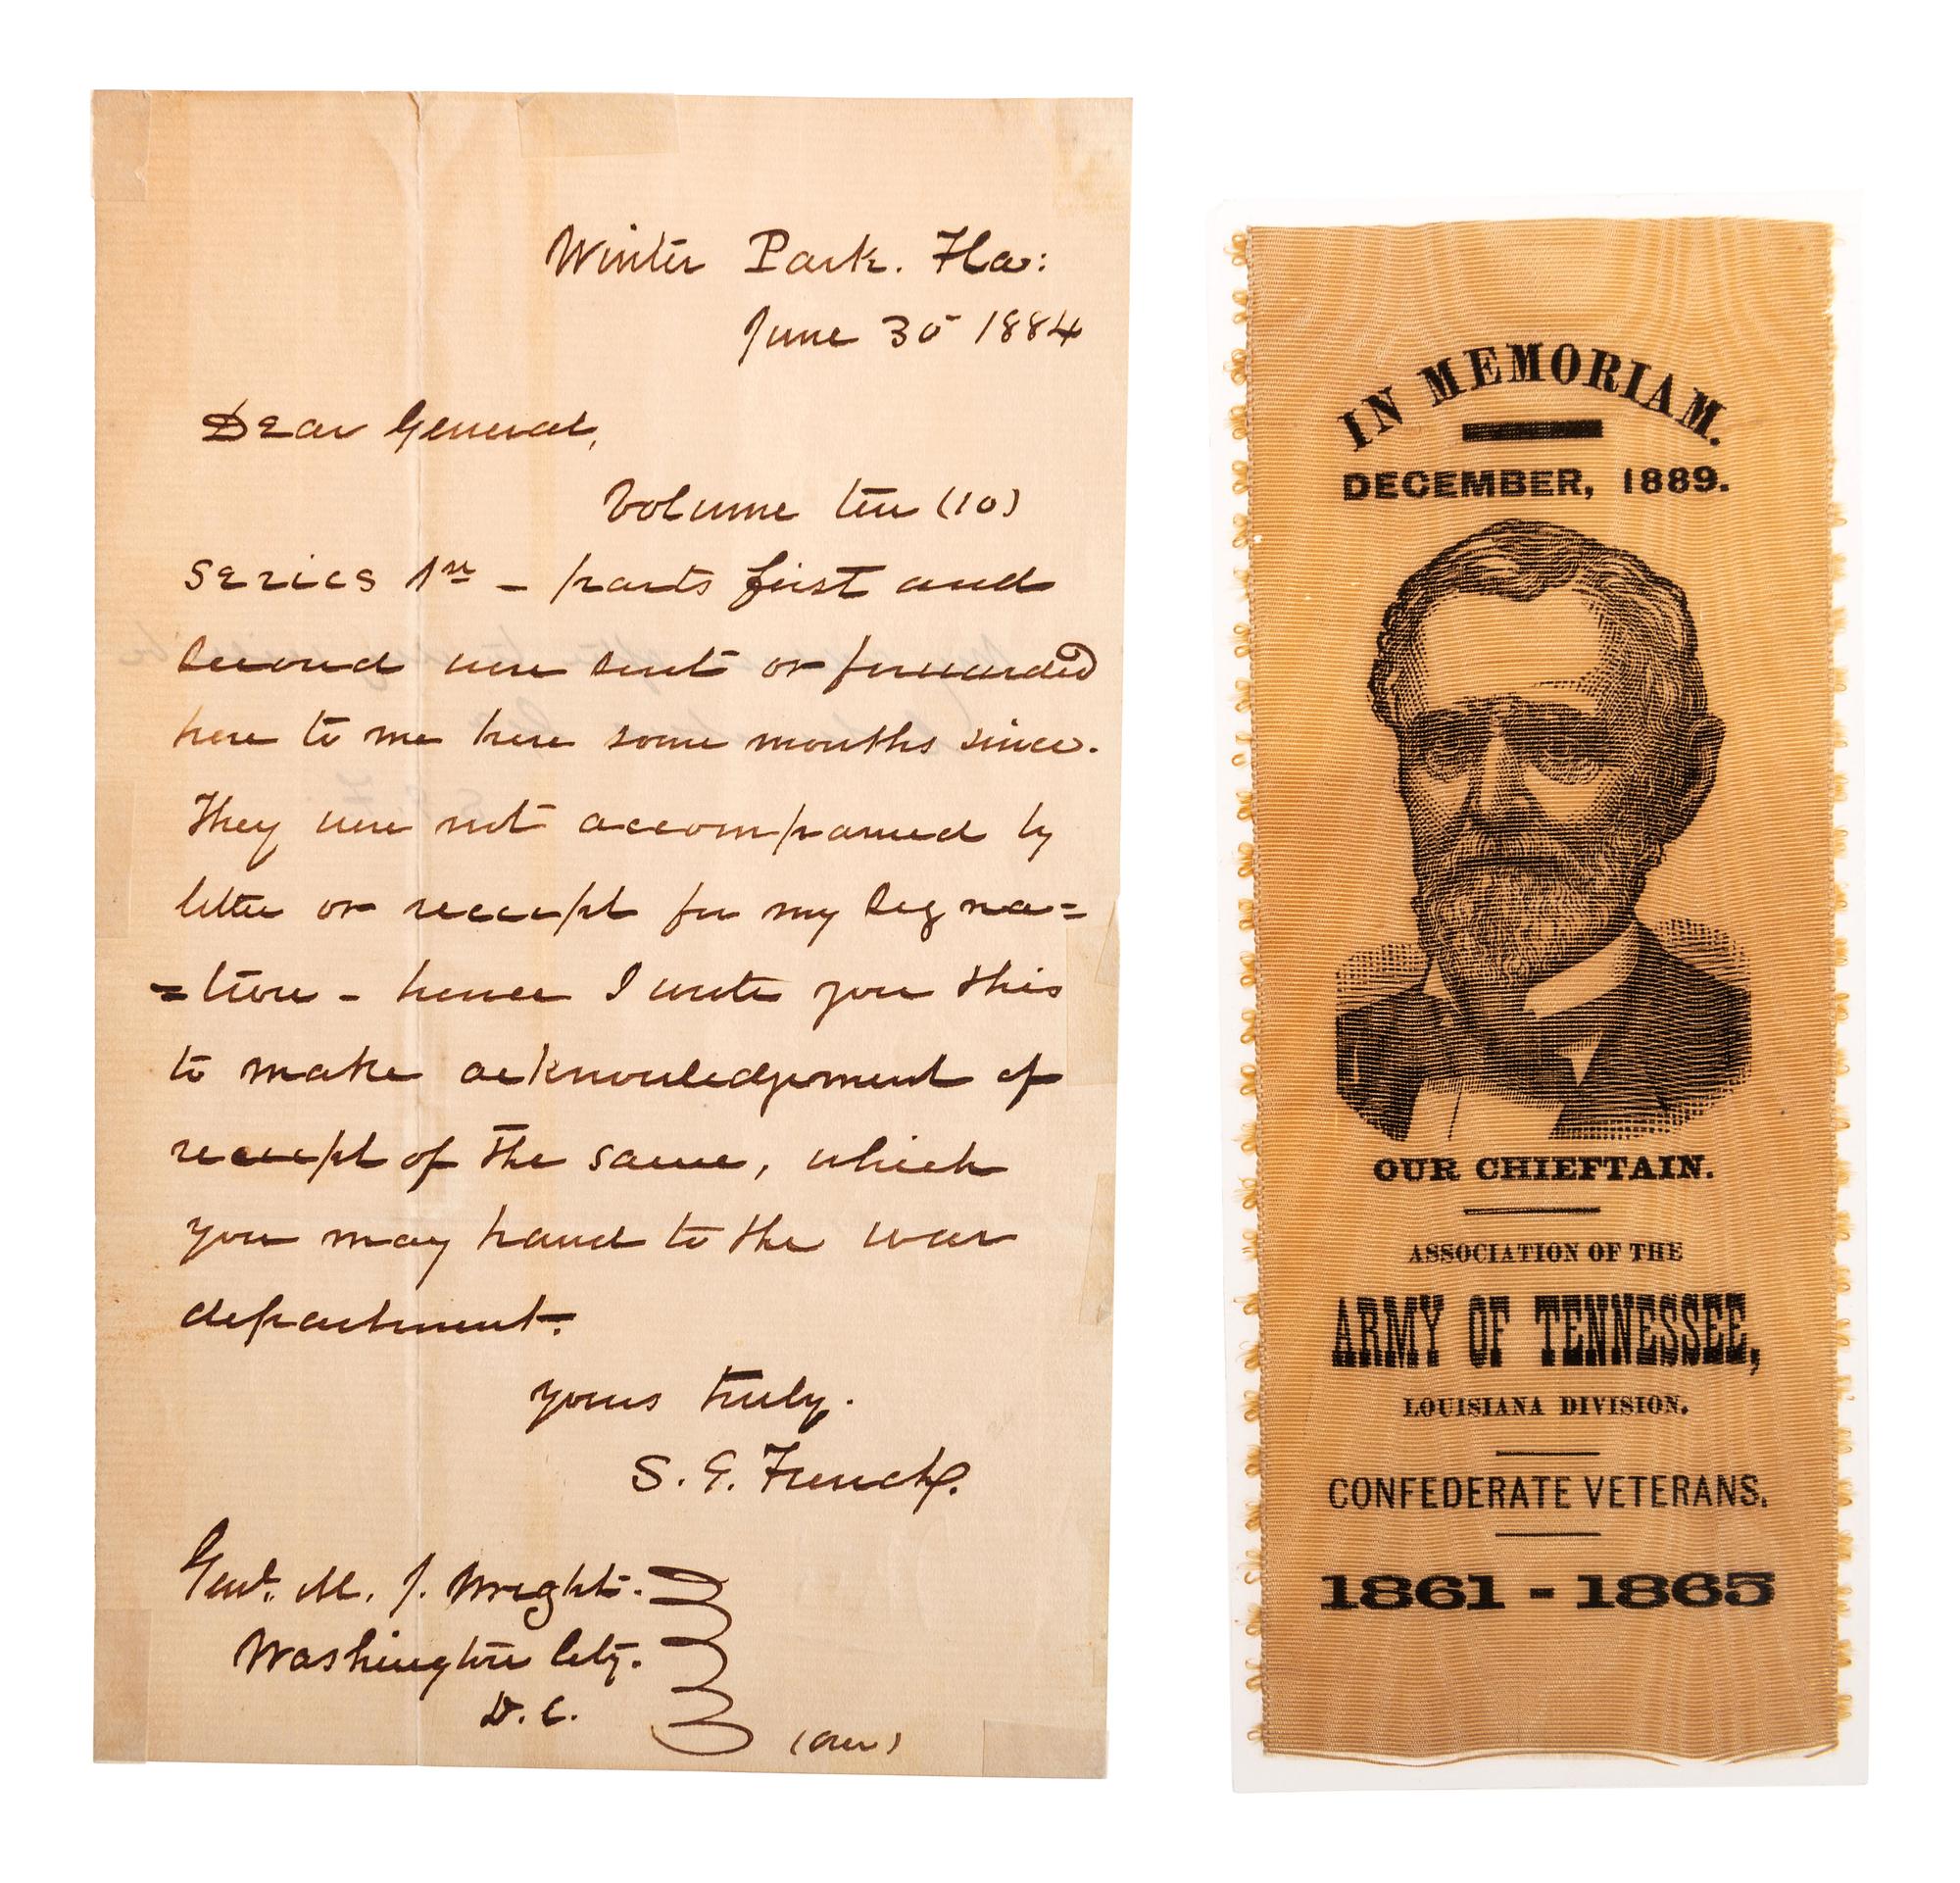 Winter Park. Fla:
June 30 1884
Dear General,
Volume ten (10)
series 1st - parts first and
second were sent or forwarded
here to me here some months since.
They were not accompanied by
letter or receipt for my signa=
=ture - hence I write you this
to make acknowledgement of
receipt of the same, which
you may hand to the war
department.
yours truly.
S. G. French.
Genl. M. J. Wright.
Washington City.
D. C.
(over)
IN MEMORIAM.
DECEMBER, 1889.
OUR CHIEFTAIN.
ASSOCIATION OF THE
ARMY OF TENNESSEE,
LOUISIANA DIVISION.
CONFEDERATE VETERANS.
1861 - 1865